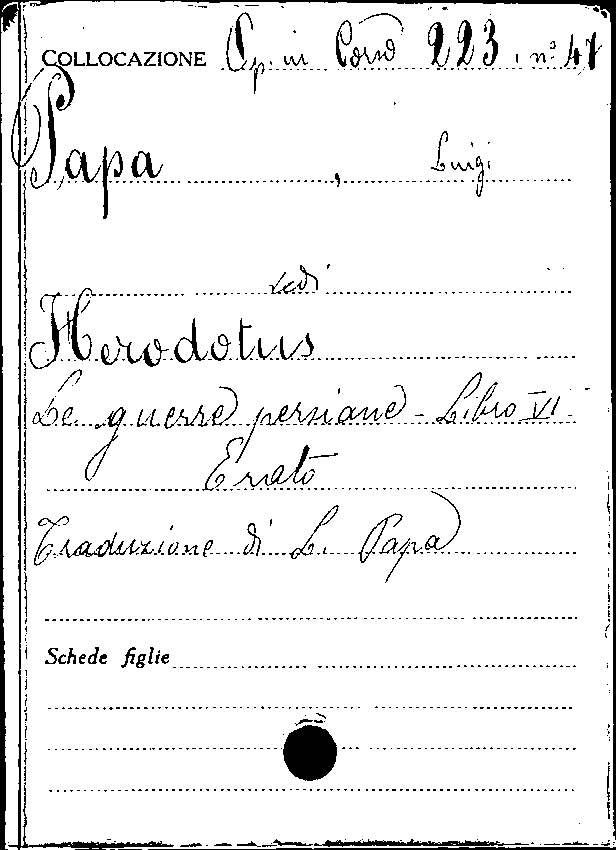 COLLOCAZIONE Op. in Corso 223. nº 47
Papa, Luigi
vedi
Herodotus
Le guerre persiane - Libro VI.
Erato
Traduzione di L. Papa
Schede figlie